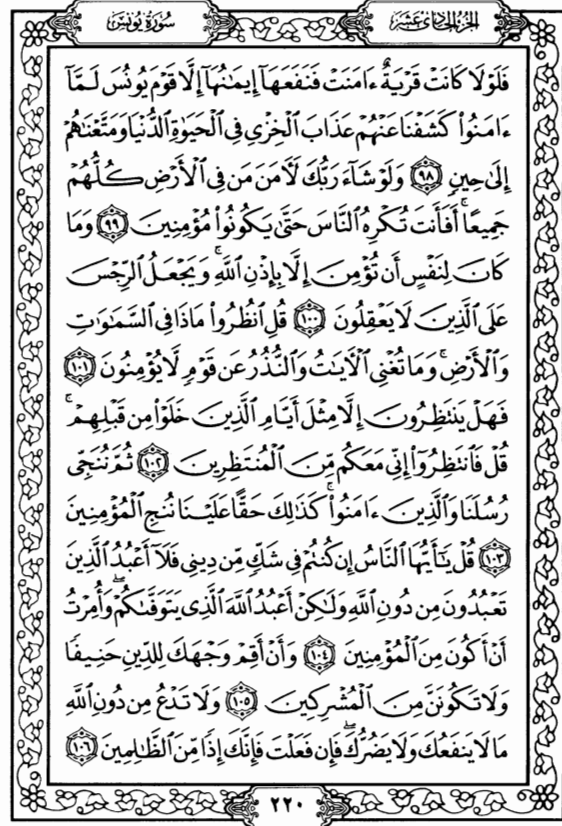 سُورَةُ يُونُسَ
الجُزْءُ الحَادِيَ عَشَرَ
فَلَوْلَا كَانَتْ قَرْيَةٌ ءَامَنَتْ فَنَفَعَهَآ إِيمَٰنُهَآ إِلَّا قَوْمَ يُونُسَ لَمَّآ
ءَامَنُوا۟ كَشَفْنَا عَنْهُمْ عَذَابَ ٱلْخِزْىِ فِى ٱلْحَيَوٰةِ ٱلدُّنْيَا وَمَتَّعْنَٰهُمْ
إِلَىٰ حِينٍ ٩٨ وَلَوْ شَآءَ رَبُّكَ لَءَامَنَ مَن فِى ٱلْأَرْضِ كُلُّهُمْ
جَمِيعًا ۚ أَفَأَنتَ تُكْرِهُ ٱلنَّاسَ حَتَّىٰ يَكُونُوا۟ مُؤْمِنِينَ ٩٩ وَمَا
كَانَ لِنَفْسٍ أَن تُؤْمِنَ إِلَّا بِإِذْنِ ٱللَّهِ ۚ وَيَجْعَلُ ٱلرِّجْسَ
عَلَى ٱلَّذِينَ لَا يَعْقِلُونَ ١٠٠ قُلِ ٱنظُرُوا۟ مَاذَا فِى ٱلسَّمَٰوَٰتِ
وَٱلْأَرْضِ ۚ وَمَا تُغْنِى ٱلْءَايَٰتُ وَٱلنُّذُرُ عَن قَوْمٍ لَّا يُؤْمِنُونَ ١٠١
فَهَلْ يَنتَظِرُونَ إِلَّا مِثْلَ أَيَّامِ ٱلَّذِينَ خَلَوْا۟ مِن قَبْلِهِمْ ۚ
قُلْ فَٱنتَظِرُوٓا۟ إِنِّى مَعَكُم مِّنَ ٱلْمُنتَظِرِينَ ١٠٢ ثُمَّ نُنَجِّى
رُسُلَنَا وَٱلَّذِينَ ءَامَنُوا۟ ۚ كَذَٰلِكَ حَقًّا عَلَيْنَا نُنجِ ٱلْمُؤْمِنِينَ
١٠٣ قُلْ يَٰٓأَيُّهَا ٱلنَّاسُ إِن كُنتُمْ فِى شَكٍّ مِّن دِينِى فَلَآ أَعْبُدُ ٱلَّذِينَ
تَعْبُدُونَ مِن دُونِ ٱللَّهِ وَلَٰكِنْ أَعْبُدُ ٱللَّهَ ٱلَّذِى يَتَوَفَّىٰكُمْ ۖ وَأُمِرْتُ
أَنْ أَكُونَ مِنَ ٱلْمُؤْمِنِينَ ١٠٤ وَأَنْ أَقِمْ وَجْهَكَ لِلدِّينِ حَنِيفًا
وَلَا تَكُونَنَّ مِنَ ٱلْمُشْرِكِينَ ١٠٥ وَلَا تَدْعُ مِن دُونِ ٱللَّهِ
مَا لَا يَنفَعُكَ وَلَا يَضُرُّكَ ۖ فَإِن فَعَلْتَ فَإِنَّكَ إِذًا مِّنَ ٱلظَّٰلِمِينَ ١٠٦
٢٢٠